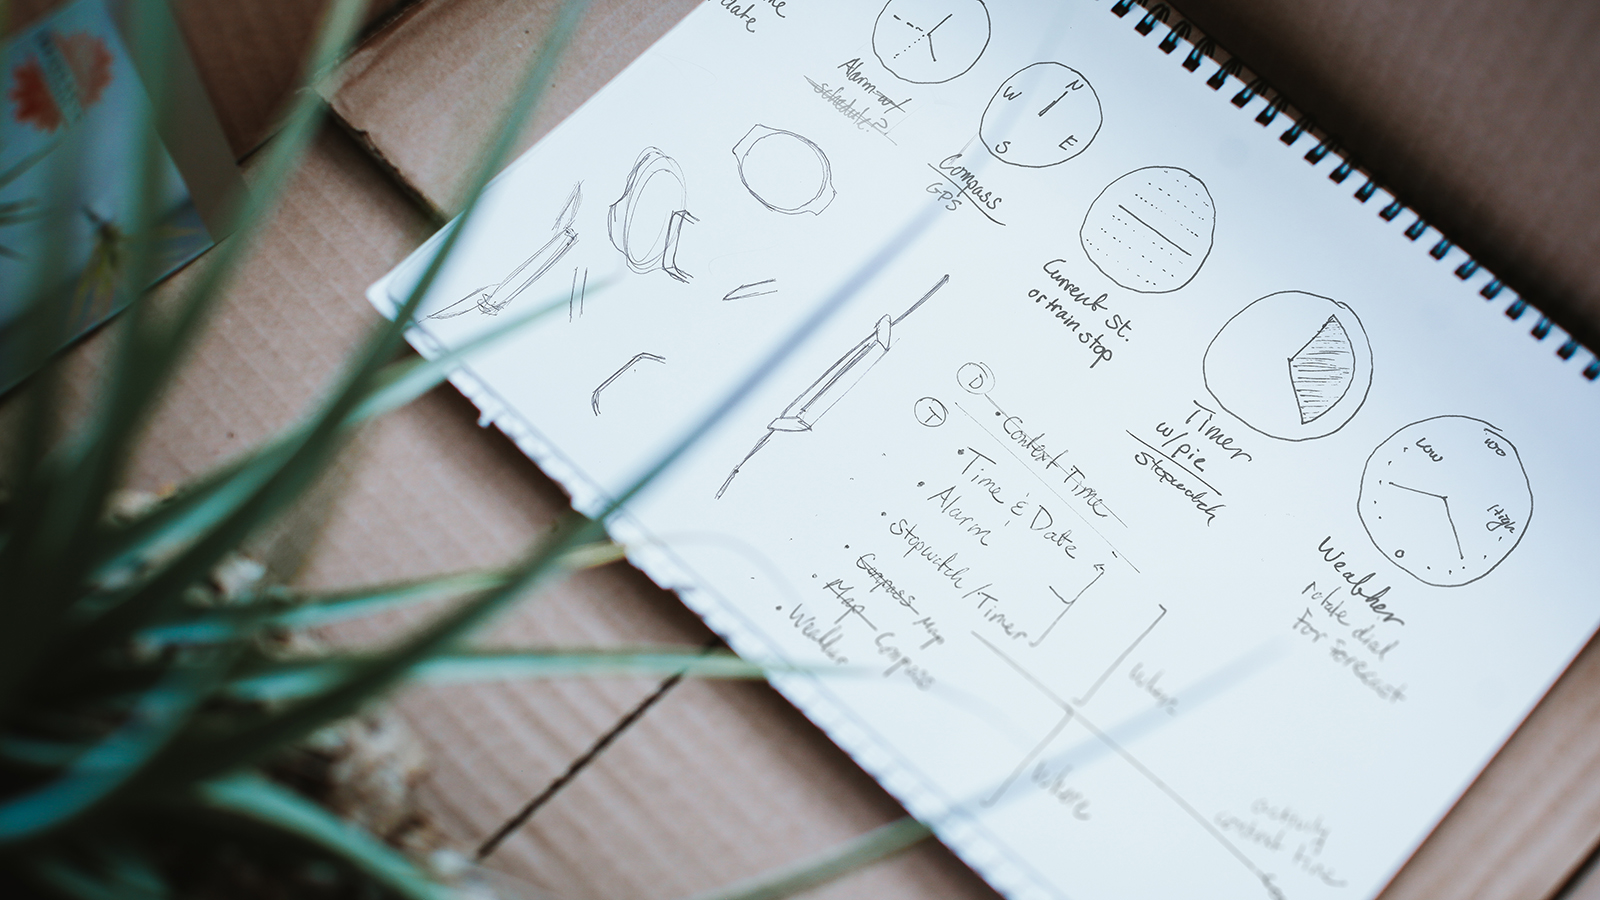 date
Alarm w/
schedule?
N
W
E
S
Compass
GPS
Current St.
or train stop
Timer
w/pie
Stopwatch
Low
100
High
0
Weather
rotate dial
For Forecast
D
T
• Context Time
• Time & Date
• Alarm
• Stopwatch/Timer
• Compass Map
• Map Compass
• Weather
Where
activity
context time